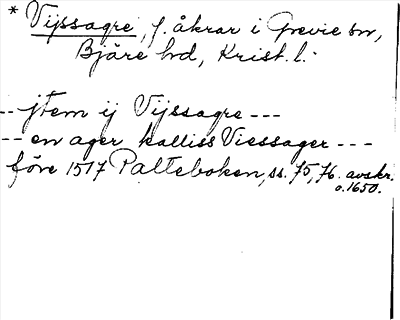 * Vijssagre, f. åkrar i Grevie sn,
Bjäre hd, Krist. l.
-- jtem ij Vijssagre ---
-- en ager kalliss Viessager ---
före 1517 Palteboken, ss. 75, 76. avskr.
o. 1650.